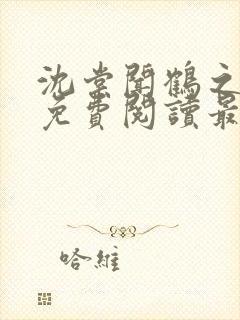 沈棠聞鶴之
免費閱讀最
哈維